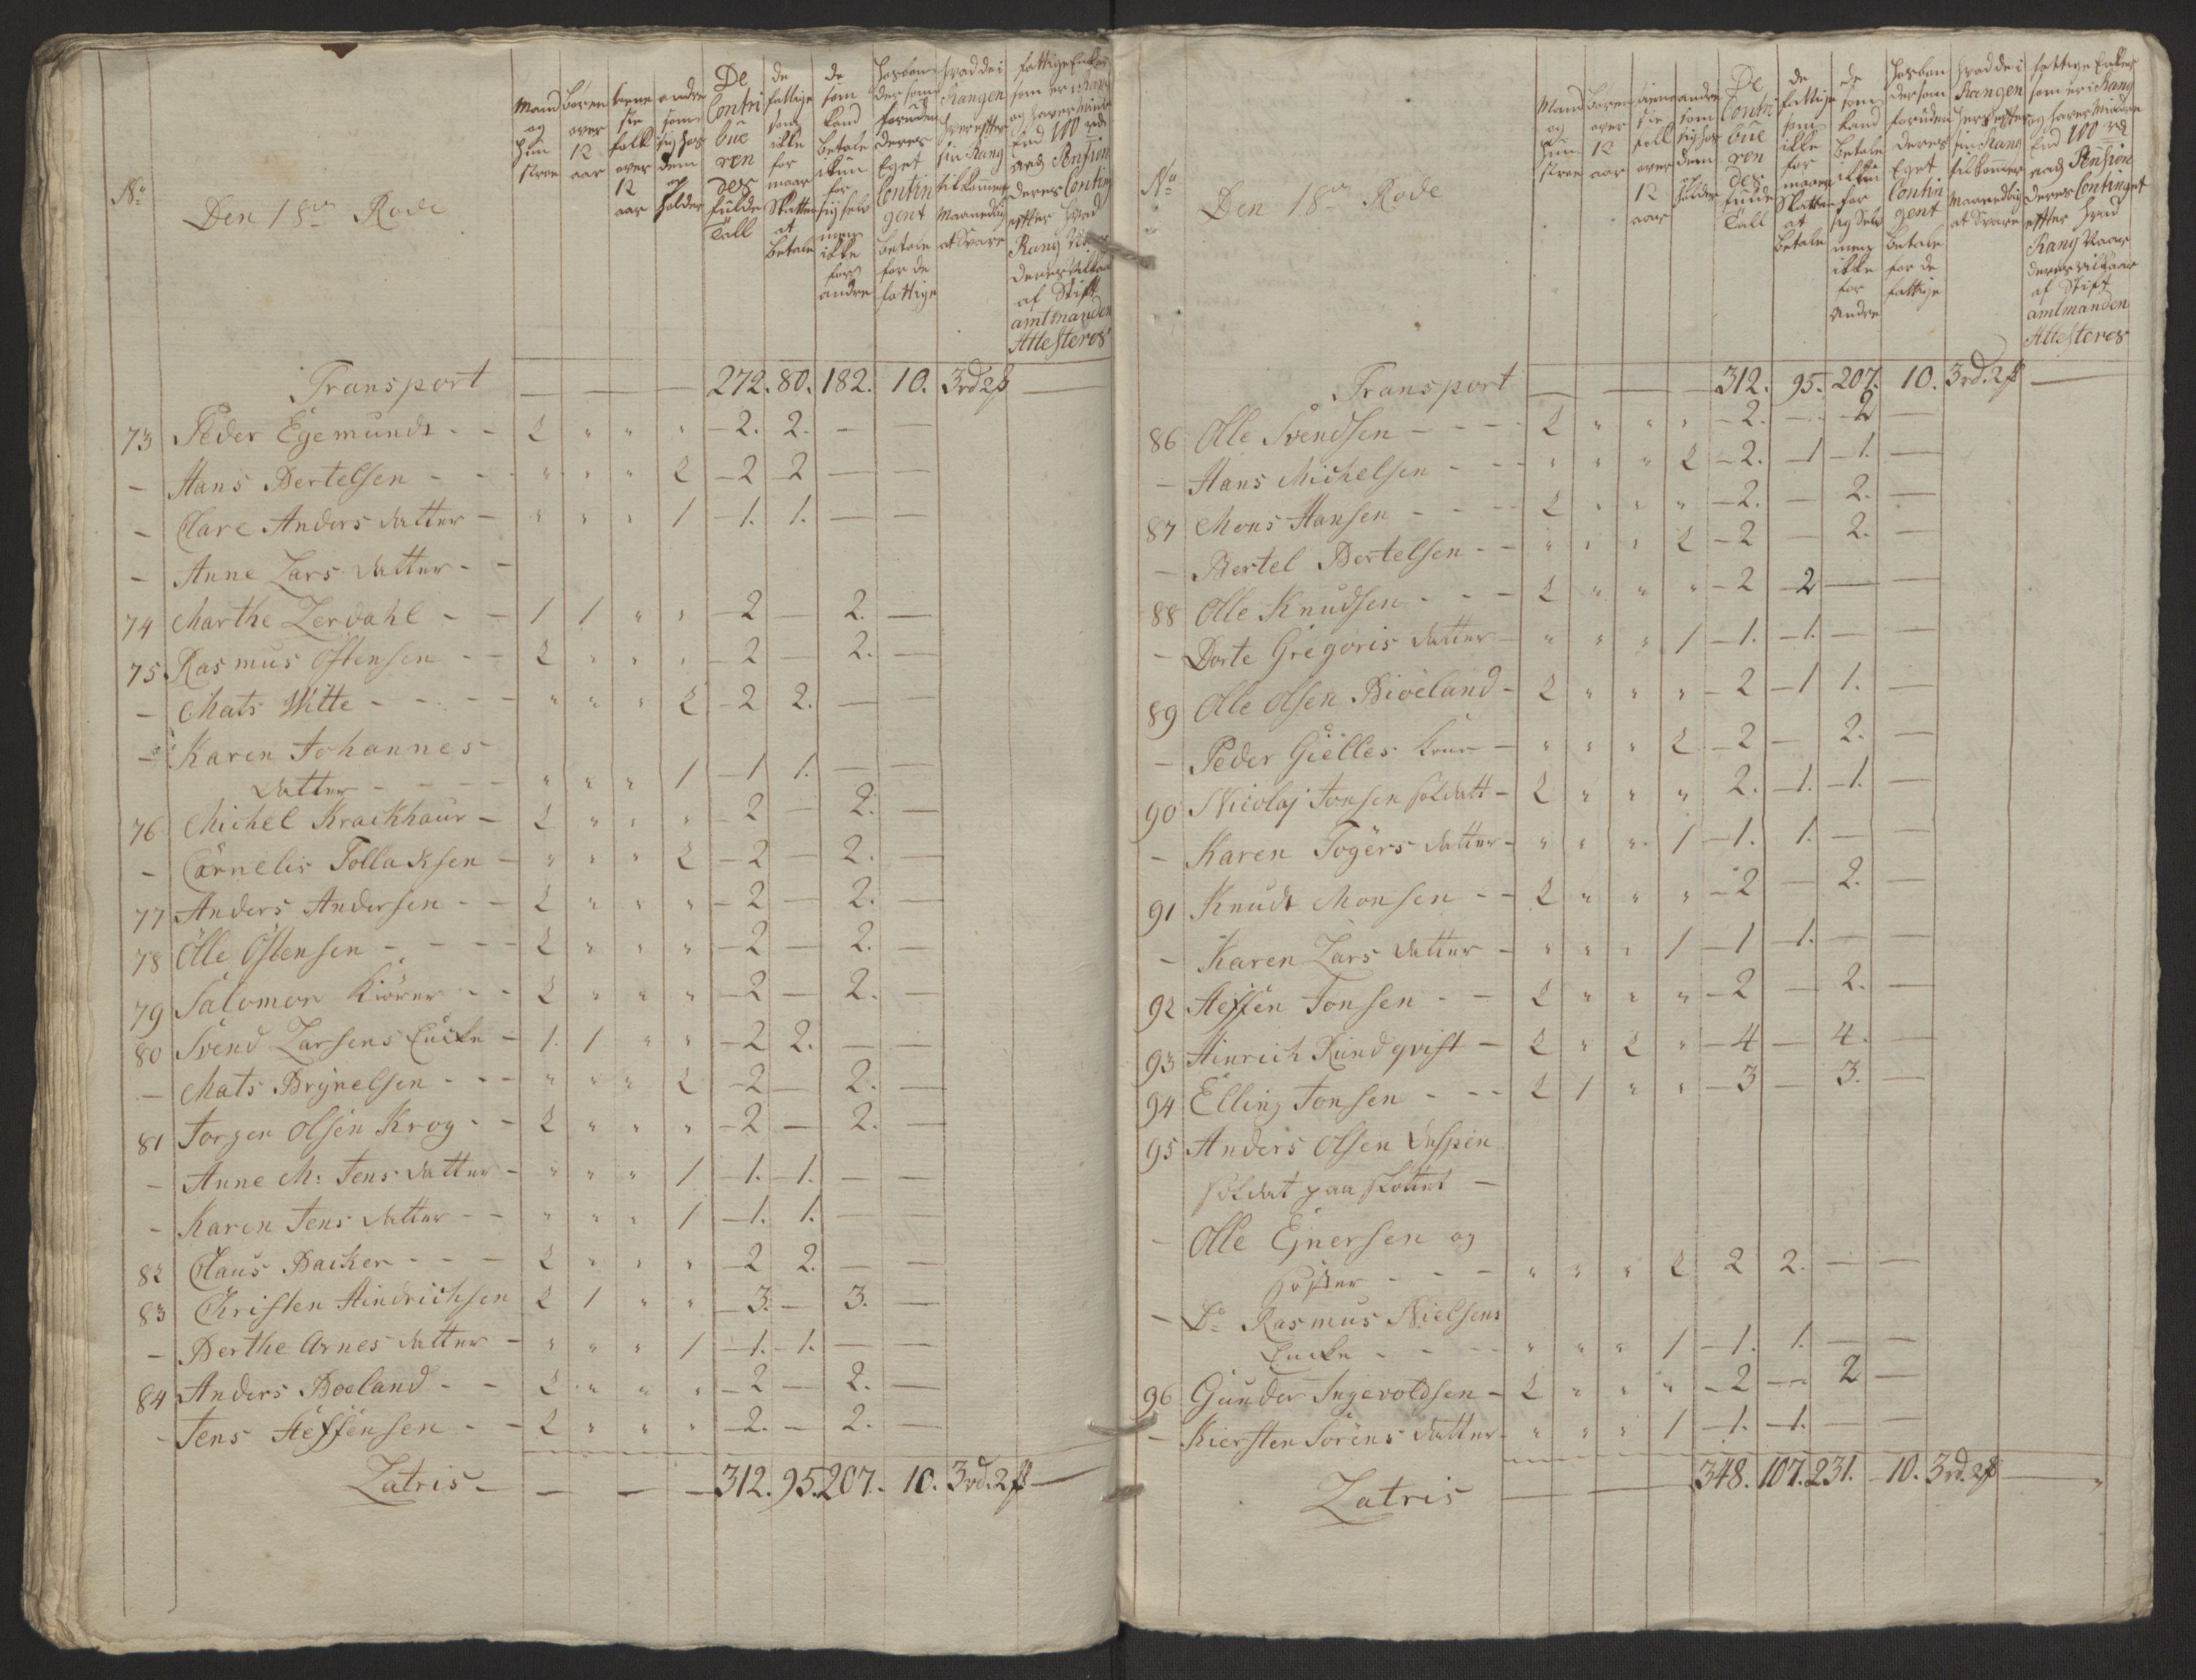 No
Den 18de Rode
Mand og Hustroe
börn over 12 aar
tienestefolk over 12 aar
andre som sig hos dem opholder
De Contribuerendes fulde Tall
de fattige som ikke formaar Skatten at betale
de som kand betale ikkun for sig selv men ikke for andre
Hosbonder som foruden deres Eget Contingent betale for de fattige
Hvad de i Rangen hver efter sin Rang tilkommer Maanedlig at Svare
fattige Enker som er i Rang og haver Mindre End 100 rd aarl Pension deres Contingent efter Hvad Rang Naar deres Vilkaar af Stiftamtmanden Attesteres
Transport — — — 272. 80. 182. 10. 3rd 2ß —
73 Peder Egemundt - - 2 " " " - 2. 2. — —
- Hans Bertelsen - - " " " 2 - 2 2 — —
- Clare Anders datter - " " " 1 - 1. 1. — —
- Anne Lars datter - -
74 Marthe Lerdahl - - 1 1 " " - 2 — 2. —
75 Rasmus Östensen - - 2 " " " - 2 — 2. —
- Mats Witte - - - - " " " 2 - 2 2. — —
- Karen Johannes
datter - - - - " " " 1 - 1 1. — —
76 Michel Krackhaur - 2 " " " - 2 — 2. —
- Cornelis Tollaksen - " " " 2 - 2 — 2. —
77 Anders Andersen - - 2 " " " - 2 — 2. —
78 Olle Östensen - - - - 2 " " " - 2 — 2. —
79 Salomon Kiörer - - 2 " " " - 2 — 2. —
80 Svend Larsens Encke - 1. 1 " " - 2 2. — —
- Mats Brynelsen - - - " " " 2 - 2 — 2. —
81 Jorgen Olsen Krog - - 2 " " " - 2 — 2. —
- Anne M: Jens datter - " " " 1 - 1. - 1. — —
- Karen Jens datter - - " " " 1 - 1. 1. — —
82 Claus Backer - - - 2 " " " - 2 2. — —
83 Christen Hindrichsen 2 1 " " - 3. — 3. —
- Berthe Arnes datter - " " " 1 - 1. - 1. — —
84 Anders Boeland - - 2 " " " - 2 — 2. —
- Jens Steffensen - - 2 " " " - 2. — 2. —
Latris - — — — 312. 95. 207. 10. 3rd. 2ß —
No
Den 18de Rode
Mand og Hustroe
börn over 12 aar
tienestefolk over 12 aar
andre som sig hos dem opholder
De Contribuerendes fulde Tall
de fattige som ikke formaaer Skatten at betale
de som kand betale ikkun for sig Selv men ikke for Andre
Hosbonder som foruden deres Eget Contingent betale for de fattige
Hvad de i Rangen hver efter sin Rang tilkommer Maanedlig at Svare
fattige Enker som er i Rang og haver Mindre End 100 rd aarl Pension deres Contingent efter Hvad Rang Naar deres vilkaar af Stiftamtmanden Attesteres
Transport — — 312. 95. 207. 10. 3rd. 2ß —
86 Olle Svendsen - - - - 2 " " " - 2. — 2 —
- Hans Michelsen - - - " " " 2 - 2. - 1 - 1. —
87 Mons Hansen - - - - 2 " " " - 2. — 2. —
- Bertel Bertelsen - - " " " 2 - 2 — 2. —
88 Olle Knudsen - - - 2 " " " - 2 - 2 — —
- Dorte Gregoris datter - " " " 1 - 1. - 1. — —
89 Olle Olsen Bioeland - 2 " " " - 2 - 1 1. —
- Peder Gielles - " " " 2 - 2 — 2. —
90 Nicolaj Jonsen soldatt - 2 " " " 2. - 1. - 1. —
- Karen Togers datter - " " " 1 - 1. 1. — —
91 Knudt Monsen - - 2 " " " - 2 — 2. —
- Karen Lars datter - " " " 1 - 1 - 1. — —
92 Steffen Jonsen - - 2 " " " - 2 — 2. —
93 Hinrich Rundqvist - 2 " 2 " - 4 — 4. —
94 Elling Jonsen - - - 2 1 " " - 3 — 3. —
95 Anders Olsen
soldat paa slottet -
- Olle Ejnersen og
söster - - - " " " 2 2 2. — —
- Do Rasmus Nielsens
Encke - - - - " " " 1 - 1. 1. — —
96 Gunder Ingevoldsen - 2 " " " - 2 — 2 —
- Kiersten Sörens datter - " " " 1 - 1. - 1. — —
Latris — — 348. 107. 231. 10. 3rd. 2ß — "